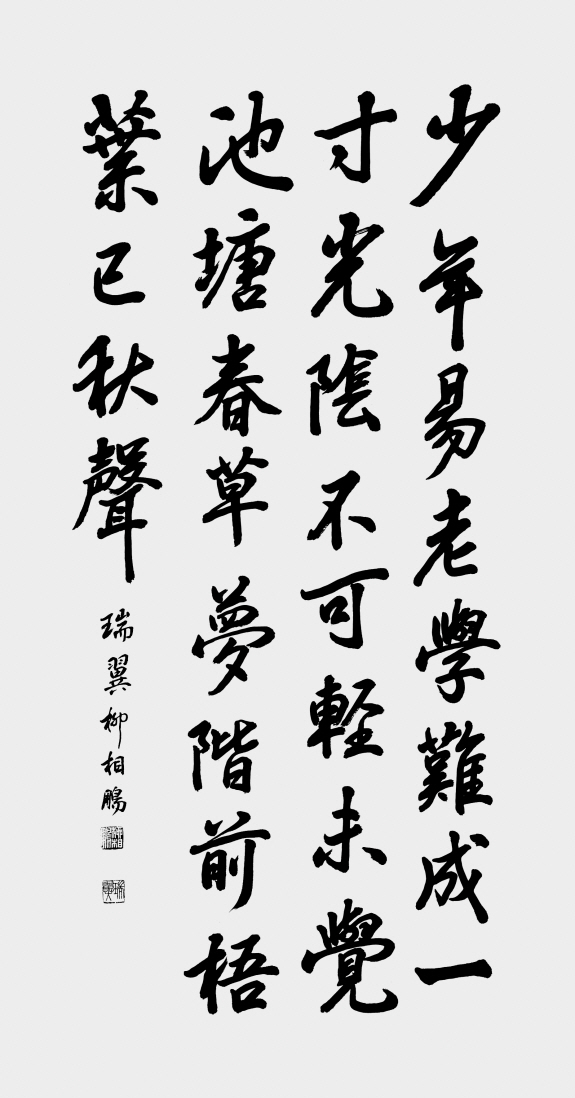 少年易老學難成一
寸光陰不可輕未覺
池塘春草夢階前梧
葉已秋聲
瑞翼柳相鵬